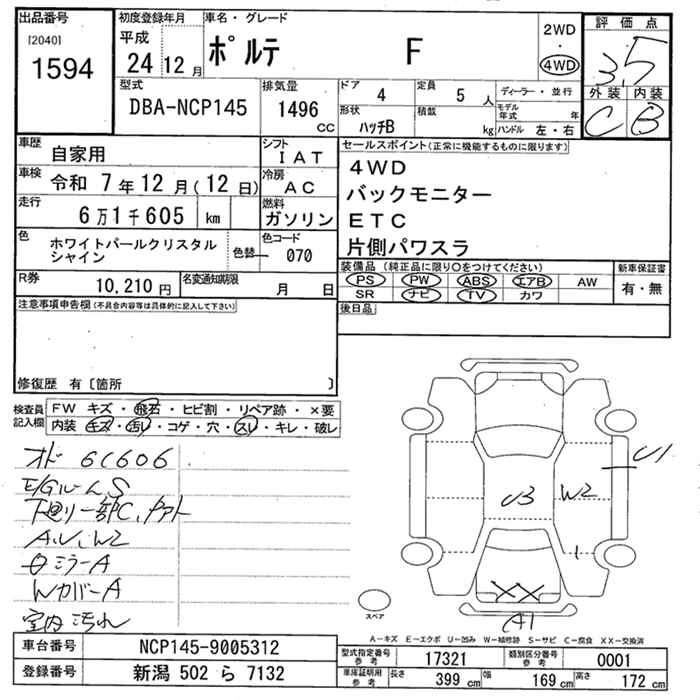 出品番号 初度登録年月 車名・グレード 2WD 評価点
[2040] 平成 ・
1594 24 12月 ポルテ F 4WD 3.5
型式 排気量 ドア 4 定員 5人 ディーラー・並行 外装 内装
DBA-NCP145 1496 cc 形状 ハッチB 積載 kg モデル年式 年 C B
ハンドル 左・右
車歴 自家用 シフト IAT セールスポイント(正常に機能するものに限ります)
車検 令和 7年12月(12日) 冷房 AC 4WD
走行 6万1千605 km 燃料 ガソリン バックモニター
ETC
色 ホワイトパールクリスタル 色替 カラーコード 070 片側パワスラ
シャイン
R券 10,210円 名変通知期限 月 日 装備品(純正品に限り○をつけてください) 新車保証書
PS PW ABS エアB AW 有・無
SR ナビ TV カワ
注意事項申告欄(不具合内容等は具体的に記入して下さい) 後日品
修復歴 有〔箇所 〕
検査員 FW キズ・飛石・ヒビ割・リペア跡・×要
記入欄 内装 キズ・汚れ・コゲ・穴・スレ・キレ・破レ
オド 61606
E/Gルーム S
下廻り一部C、
A.U.W2
ミラーA
WカバーA
室内汚れ
U1
U3 W2
XX
A1
スペア
A－キズ E－エクボ U－凹み W－補修跡 S－サビ C－腐食 XX－交換済
車台番号 NCP145-9005312 型式指定番号 参考 17321 類別区分番号 参考 0001
登録番号 新潟 502 ら 7132 車庫証明用 参考 長さ 399 cm 幅 169 cm 高さ 172 cm